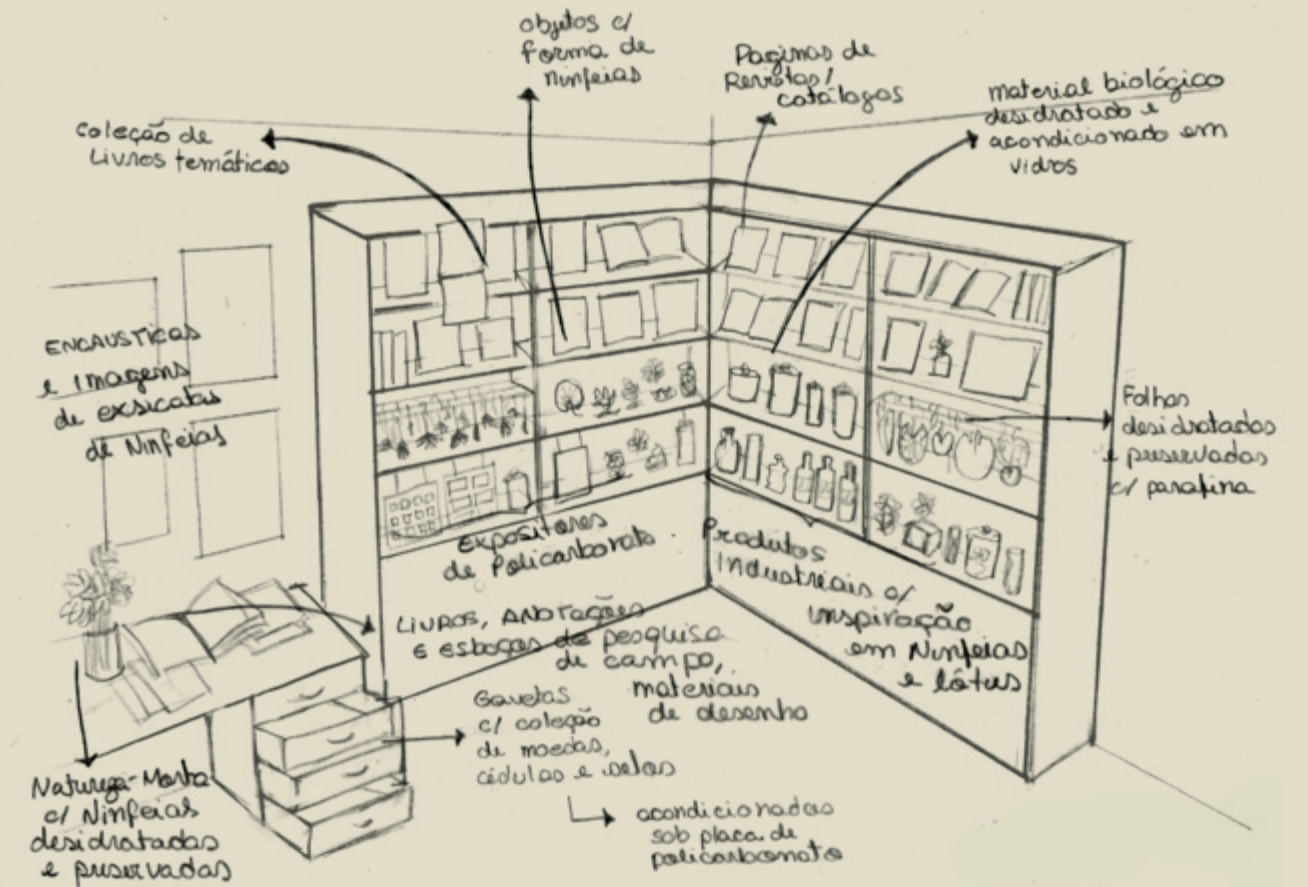 objetos c/
forma de
ninfeias
Paginas de
Revistas/
catálogos
material biológico
desidratado e
acondicionado em
vidros
coleção de
Livros temáticos
ENCAUSTICAS
e imagens
de exsicatas
de Ninfeias
Folhas
desidratadas
e preservadas
c/ parafina
Expositores
de Policarbonato
Produtos
industriais c/
inspiração
em Ninfeias
e lótus
LIVROS, ANOTAÇÕES
E esboços de pesquisa
de campo,
materiais
de desenho
Gavetas
c/ coleção
de moedas,
cédulas e selos
acondicionadas
sob placa de
policarbonato
Natureza-Morta
c/ Ninfeias
desidratadas
e preservadas